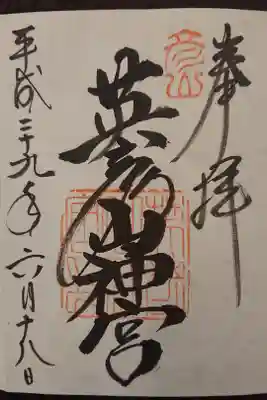 奉拝
英彦山神宮
平成二十九年六月十八日